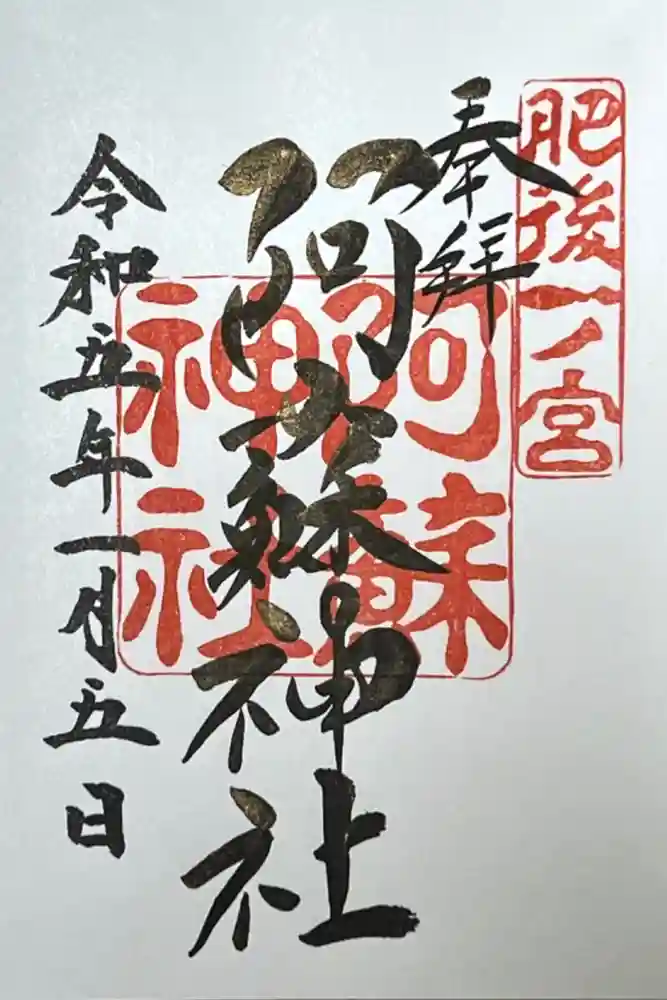 肥後一ノ宮
奉拜
阿蘇神社
阿蘇神社
令和五年一月五日